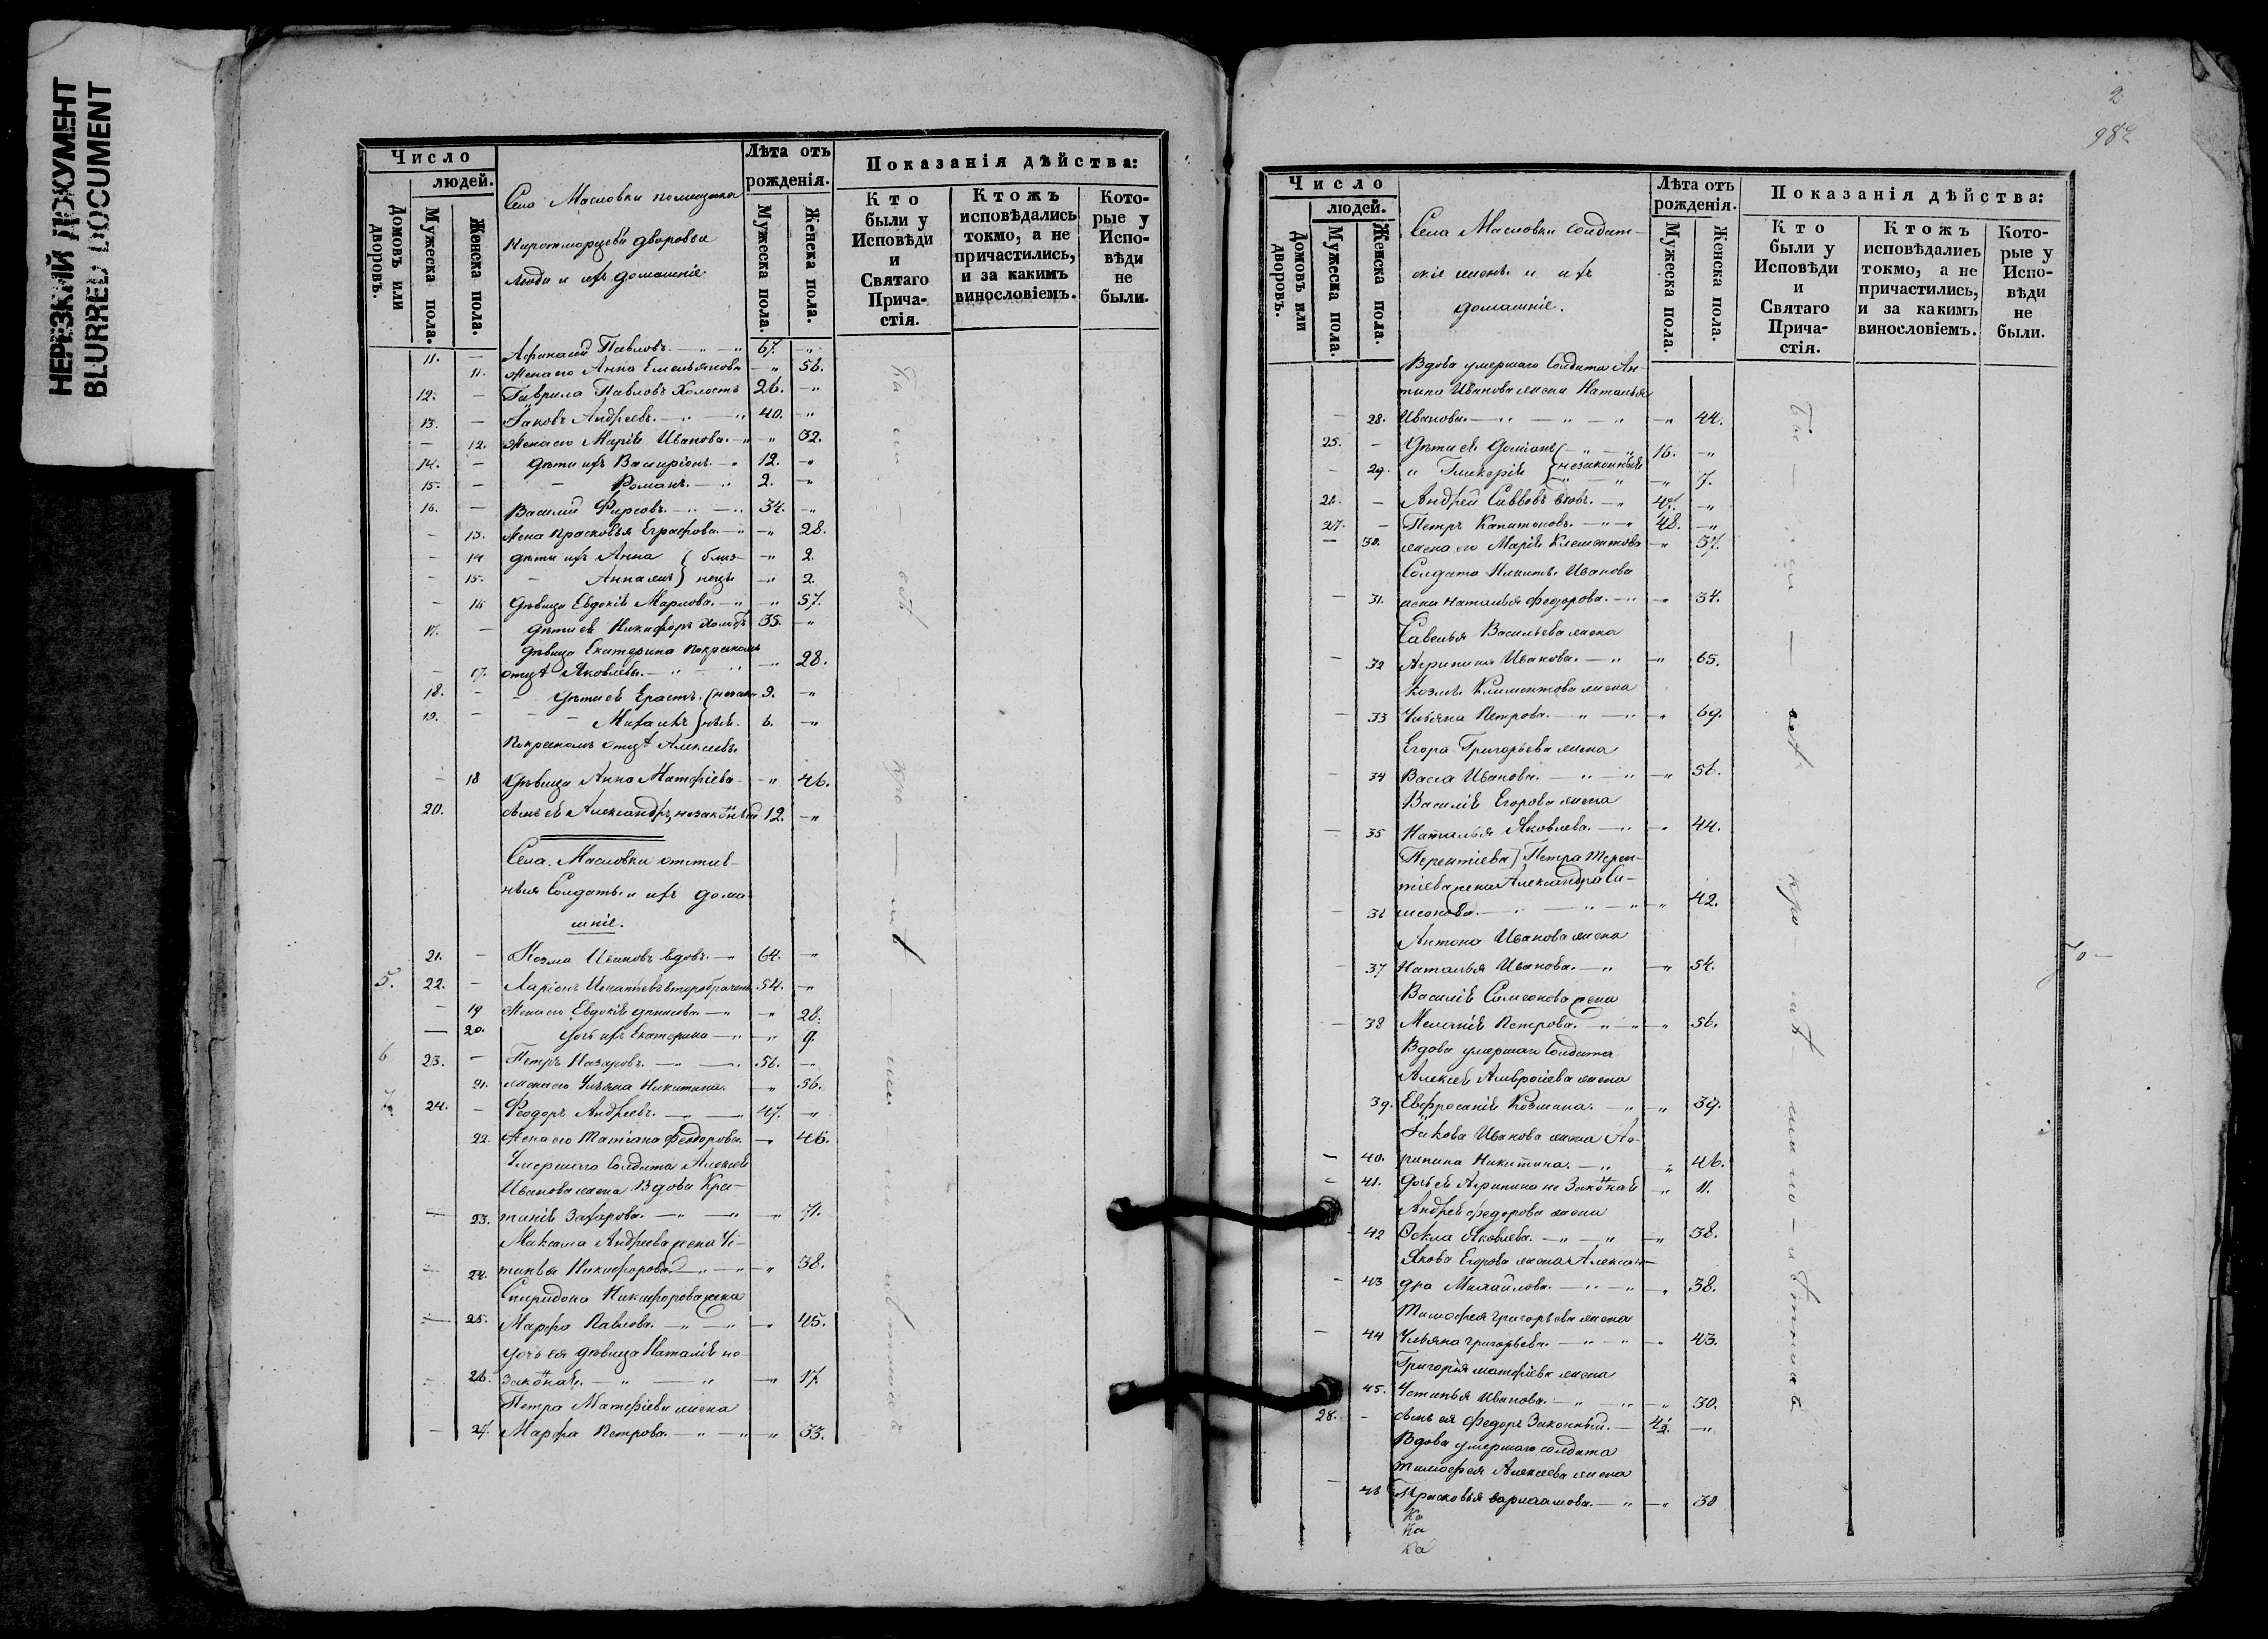 НЕРЕЗКИЙ ДОКУМЕНТ
BLURRED DOCUMENT
Число
людей.
Домовъ или дворовъ.
Мужеска пола.
Женска пола.
Села Масловки помещика
дворовыя
люди и ихъ домашніе.
Лѣта отъ рожденія.
Мужеска пола.
Женска пола.
Показанія дѣйства:
Кто были у Исповѣди и Святаго Причастія.
Ктожъ исповѣдались токмо, а не причастились, и за какимъ винословіемъ.
Которые у Исповѣди не были.
11. — Афанасій Павловъ. — „ — „ 67. — „
11. Жена его Анна Емельянова — „ 56.
12. — Гаврила Павловъ Холостъ 26. — „
13. — Іаковъ Андреевъ. — „ — „ 40. — „
— 12. Жена его Марія Иванова. — „ — „ 32.
14. — Дѣти ихъ Василріонъ — „ 12. — „
15. — — Романъ. — „ 2. — „
16. — Василій Фирсовъ. — „ — „ 34. — „
— 13. Жена Прасковья Евграфова — „ — „ 28.
— 14 Дѣти ихъ Анна (близ- — „ 2.
— 15. — Анна же) нецы — „ 2.
— 16 Дѣвица Евдокія Марлова. — „ — „ 57.
17. — Дѣти ея Никифоръ холостъ 35. — „
Дѣвица Екатерина по крестномъ
— 17. отцѣ Яковлева. — „ — „ — „ 28.
18. — — Дѣти ея Ерастъ (незакон 9. — „
19. — — Михаилъ ) ные. 6. — „
По крестномъ отцѣ Алексеевы
— 18 Дѣвица Анна Матфіева — — „ 46.
20. Сынъ ея Александръ, незаконный 12. — „
Села Масловки отстав-
ныя Солдаты и ихъ дома-
шніе.
21. — Козма Ивановъ вдовъ. — „ 64. — „
5. 22. — Ларіонъ Игнатьевъ второбрачный 54. — „
— 19 Жена его Евдокія Денисова — „ — „ 28.
— 20. Дочь ихъ Екатерина — „ — „ 9.
6 23. — Петръ Назаровъ. — „ — „ 56. — „
21. Жена его Ульяна Никитина. — „ 56.
7. 24. — Феодоръ Андреевъ. — „ — „ 47. — „
22. Жена его Татіана Феодорова. — „ 46.
Умершаго Солдата Алексея
Иванова жена Вдова Кси-
— 23. Захарова. — „ — „ — „ 71.
Максима Андреева жена Ус-
— 24. тинья Никифорова — „ — „ — „ 38.
Спиридона Никифорова жена
— 25. Марфа Павлова. — „ — „ — „ 45.
Дочь ея дѣвица Наталія не-
— 26. законная. — „ — „ — „ 17.
Петра Матфіева жена
— 27. Марфа Петрова. — „ — „ — „ 33.
2
Число
людей.
Домовъ или дворовъ.
Мужеска пола.
Женска пола.
Села Масловки солдат-
скіе жены и ихъ
домашніе.
Лѣта отъ рожденія.
Мужеска пола.
Женска пола.
Показанія дѣйства:
Кто были у Исповѣди и Святаго Причастія.
Ктожъ исповѣдались токмо, а не причастились, и за какимъ винословіемъ.
Которые у Исповѣди не были.
Вдова умершаго Солдата Ан-
типа Иванова жена Наталья
— 28. Иванова. — „ — „ — „ — „ 44.
25. — Дѣти ея Доміанъ ( — „ 16. — „
— 29. „ Гликерія ( незаконныя — „ 7.
26. — Андрей Саввовъ вдовъ. — „ — „
27. — Петръ Капитоновъ. — „ — „ 48. — „
— 30. жена его Марія Клементова — „ 37.
Солдата Никиты Иванова
— 31. жена Наталья Федорова. — „ — „ 34.
Савелья Васильева жена
— 32 Агрипина Иванова. — „ — „ 65.
Козмы Климентова жена
— 33 Ульяна Петрова. — „ — „ — „ 69.
Егора Григорьева жена
— 34 Васса Иванова. — „ — „ — „ 56.
Василія Егорова жена
— 35 Наталья Яковлева. — „ — „ 44.
Терентіева) Петра Терен-
тіева жена Александра Си-
— 36 меонова. — „ — „ — „ — „ 42.
Антона Иванова жена
— 37 Наталья Иванова. — „ — „ 54.
Василія Симеонова жена
— 38 Меланія Петрова. — „ — „ — „ 56.
Вдова умершаго Солдата
Алексея Амвросіева жена
39. Евфросинія Козмина. — „ — „ 39.
Іакова Иванова жена Аг-
— 40. рипина Никитина. — „ — „ 46.
— 41. Дочь ея Агрипина не законная — „ 11.
Андрея Федорова жена
— 42 Фекла Яковлева. — „ — „ — „ 38.
Якова Егорова жена Алексан-
— 43 дра Михайлова. — „ — „ — „ 38.
Тимофея Григорьева жена
— 44 Ульяна Григорьева. — „ — „ — „ 43.
Григорія Матфіева жена
45. Устинья Иванова. — „ — „ — „ 30.
28. — Сынъ ея Федоръ Законный. — ½. — „
Вдова умершаго солдата
Тимофея Алексеева жена
— 46 Прасковья Варлаамова. — „ — „ 30
Ка
Ка
Ка